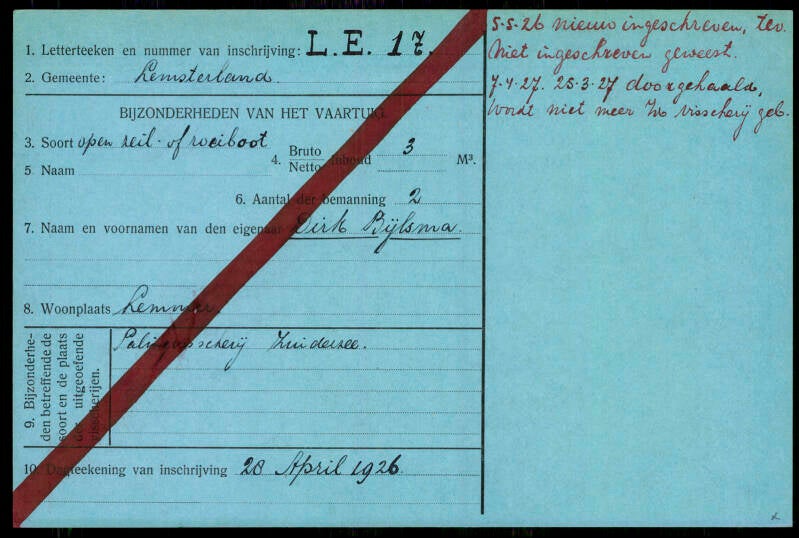 1. Letterteeken en nummer van inschrijving: L.E. 17.
2. Gemeente: Lemsterland.
BIJZONDERHEDEN VAN HET VAARTUIG.
3. Soort open zeil- of roeiboot
4. Bruto Netto inhoud 3 M³.
5 Naam
6. Aantal der bemanning 2
7. Naam en voornamen van den eigenaar Dirk Bijlsma.
8. Woonplaats Lemmer.
9. Bijzonderhe-
den betreffende de
soort en de plaats
der uitgeoefende
visscherijen.
Palingvisscherij Zuiderzee.
10. Dagteekening van inschrijving 28 April 1926
5-5-26 nieuw ingeschreven, tev.
Niet ingeschreven geweest.
7-4-27. 25-3-27 doorgehaald,
Wordt niet meer ter visscherij geb.